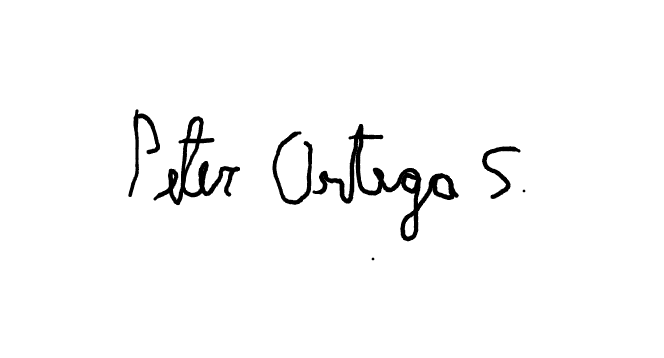 Peter Ortega S.